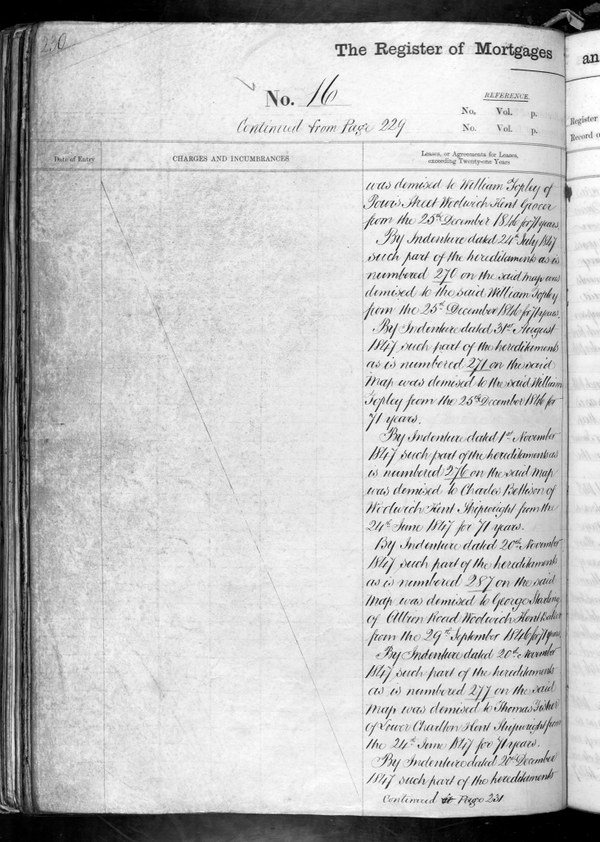 230
The Register of Mortgages
an
No. 16
REFERENCE.
No. Vol. p.
Continued from Page 229
No. Vol. p.
Register
Record o
Date of Entry
CHARGES AND INCUMBRANCES
Leases, or Agreements for Leases,
exceeding Twenty-one Years
was demised to William Topley of
Powis Street Woolwich Kent Grocer
from the 25th December 1846 for 71 years.
By Indenture dated 24th July 1847
such part of the hereditaments as is
numbered 270 on the said map was
demised to the said William Topley
from the 25th December 1846 for 71 years.
By Indenture dated 31st August
1847 such part of the hereditaments
as is numbered 271 on the said
Map was demised to the said William
Topley from the 25th December 1846 for
71 years.
By Indenture dated 1st November
1847 such part of the hereditaments as
is numbered 276 on the said Map
was demised to Charles of
Woolwich Kent Shipwright from the
24th June 1847 for 71 years.
By Indenture dated 20th November
1847 such part of the hereditaments
as is numbered 287 on the said
Map was demised to George
of Albion Road Woolwich Kent
from the 29th September 1846 for 71 years
By Indenture dated 20th November
1847 such part of the hereditaments
as is numbered 277 on the said
Map was demised to Thomas Fisher
of Lower Charlton Kent Shipwright from
the 24th June 1847 for 71 years.
By Indenture dated 20th December
1847 such part of the hereditaments
Continued Page 231